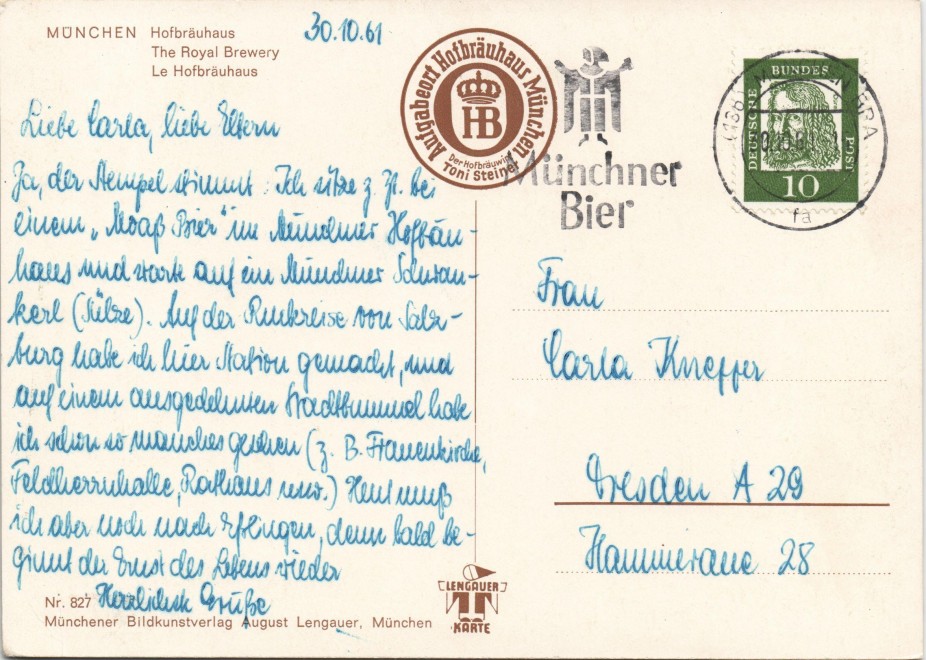 MÜNCHEN Hofbräuhaus
The Royal Brewery
Le Hofbräuhaus
30.10.61
Ausgabeort Hofbräuhaus München
HB
Der Hofbräuwirt
Toni Steiner
Münchner
Bier
DEUTSCHE BUNDESPOST
10
fa
Liebe Carla, liebe Eltern
Ja, der Stempel stimmt: Ich sitze z. Zt. bei
einem „Moaß Bier" im Münchner Hofbräu-
haus und warte auf ein Münchner Schwan-
kerl (Sülze). Auf der Rückreise von Salz-
burg habe ich hier Station gemacht, und
auf einem ausgedehnten Stadtbummel habe
ich schon so manches gesehen (z. B. Frauenkirche,
Feldherrnhalle, Rathaus usw.) Heut muß
ich aber noch nach Eßlingen, denn bald be-
ginnt der Ernst des Lebens wieder
Herzlichste Grüße
Frau
Carla Kneffer
Dresden A 29
28
Nr. 827
Münchener Bildkunstverlag August Lengauer, München
LENGAUER
KARTE